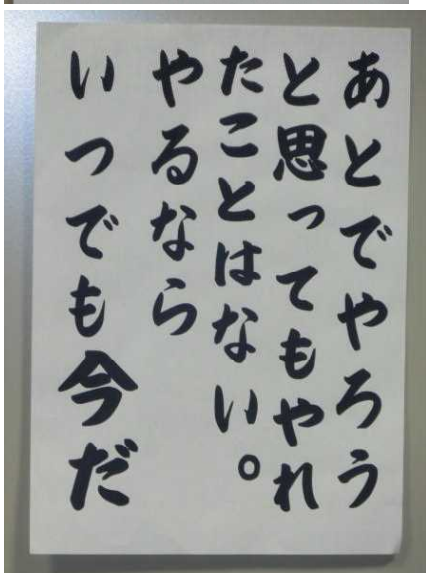 あとでやろう
と思ってもやれ
たことはない。
やるなら
いつでも今だ